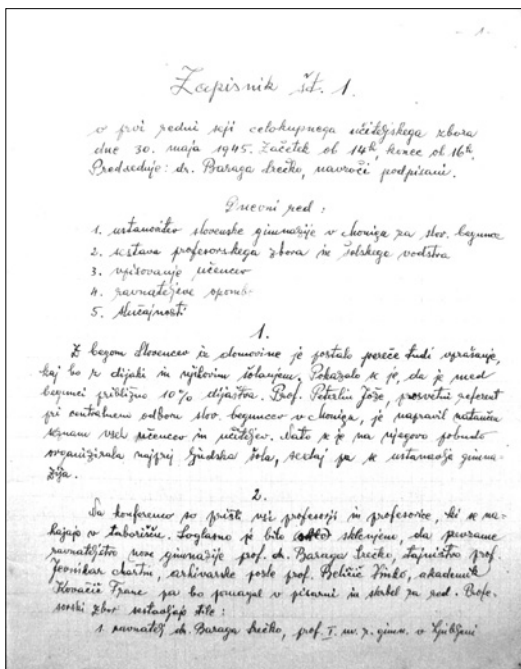 - 1 -
Zapisnik št. 1.
o prvi redni seji celokupnega učiteljskega zbora
dne 30. maja 1945. Začetek ob 14h, konec ob 16h.
Predseduje: dr. Baraga Srečko, navzoči podpisani.
Dnevni red:
1. ustanovitev slovenske gimnazije v Monigo za slov. begunce
2. sestava profesorskega zbora in šolskega vodstva
3. vpisovanje učencev
4. ravnateljeve
5. slučajnosti
1.
Z begom Slovencev iz domovine je postalo pereče tudi vprašanje,
kaj bo z dijaki in njihovim šolanjem. Pokazalo se je, da je med
begunci približno 10% dijaštva. Prof. Peterlin Jože, prosvetni referent
pri centralnem odboru slov. beguncev v Monigo, je napravil natančen
seznam vseh učencev in učiteljev. Nato se je na njegovo pobudo
organizirala najprej ljudska šola, sedaj pa se ustanavlja gimna-
zija.
2.
Na konferenco so prišli vsi profesorji in profesorice, ki se na-
hajajo v taborišču. Soglasno je bilo sklenjeno, da prevzame
ravnateljstvo nove gimnazije prof. dr. Baraga Srečko, tajništvo prof.
Jevnikar Martin, arhivarske posle prof. Beličič Vinko, akademik
Kovačič Franc pa bo pomagal v pisarni in skrbel za red. Profe-
sorski zbor sestavljajo sile:
1. ravnatelj dr. Baraga Srečko, prof. I. m. r. gimn. v Ljubljani